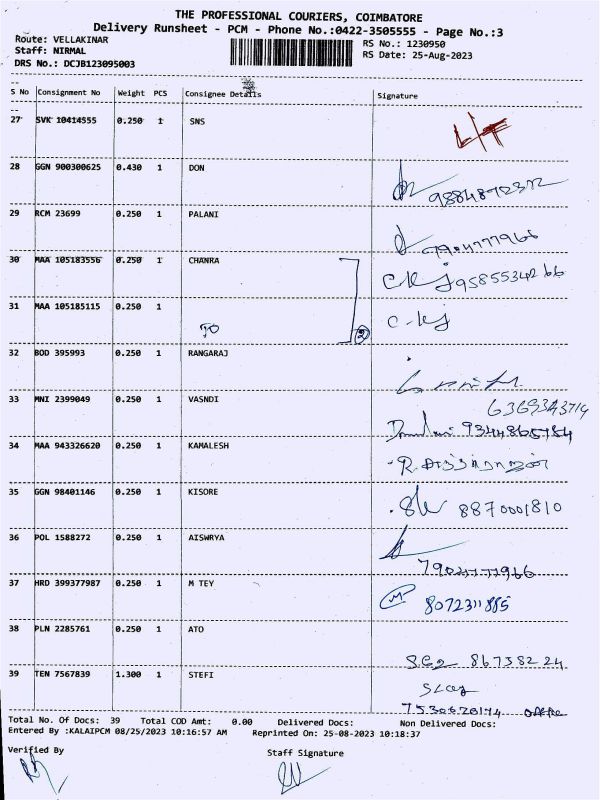 THE PROFESSIONAL COURIERS, COIMBATORE
Delivery Runsheet - PCM - Phone No.:0422-3505555 - Page No.:3
Route: VELLAKINAR
RS No.: 1230950
Staff: NIRMAL
RS Date: 25-Aug-2023
DRS No.: DCJB123095003
S No Consignment No Weight PCS Consignee Details Signature
27 SVK 10414555 0.250 1 SNS
28 GGN 900300625 0.430 1 DON
9884872372
29 RCM 23699 0.250 1 PALANI
7904777966
30 MAA 105183556 0.250 1 CHANRA
9585534266
31 MAA 105185115 0.250 1
TO
2
32 BOD 395993 0.250 1 RANGARAJ
33 MNI 2399049 0.250 1 VASNDI
6369343714
9344865754
34 MAA 943326620 0.250 1 KAMALESH
35 GGN 98401146 0.250 1 KISORE
8870001810
36 POL 1588272 0.250 1 AISWRYA
7904777966
37 HRD 399377987 0.250 1 M TEY
8072311885
38 PLN 2285761 0.250 1 ATO
867382 24
39 TEN 7567839 1.300 1 STEFI
Total No. Of Docs: 39 Total COD Amt: 0.00 Delivered Docs: Non Delivered Docs:
Entered By :KALAIPCM 08/25/2023 10:16:57 AM Reprinted On: 25-08-2023 10:18:37
Verified By
Staff Signature